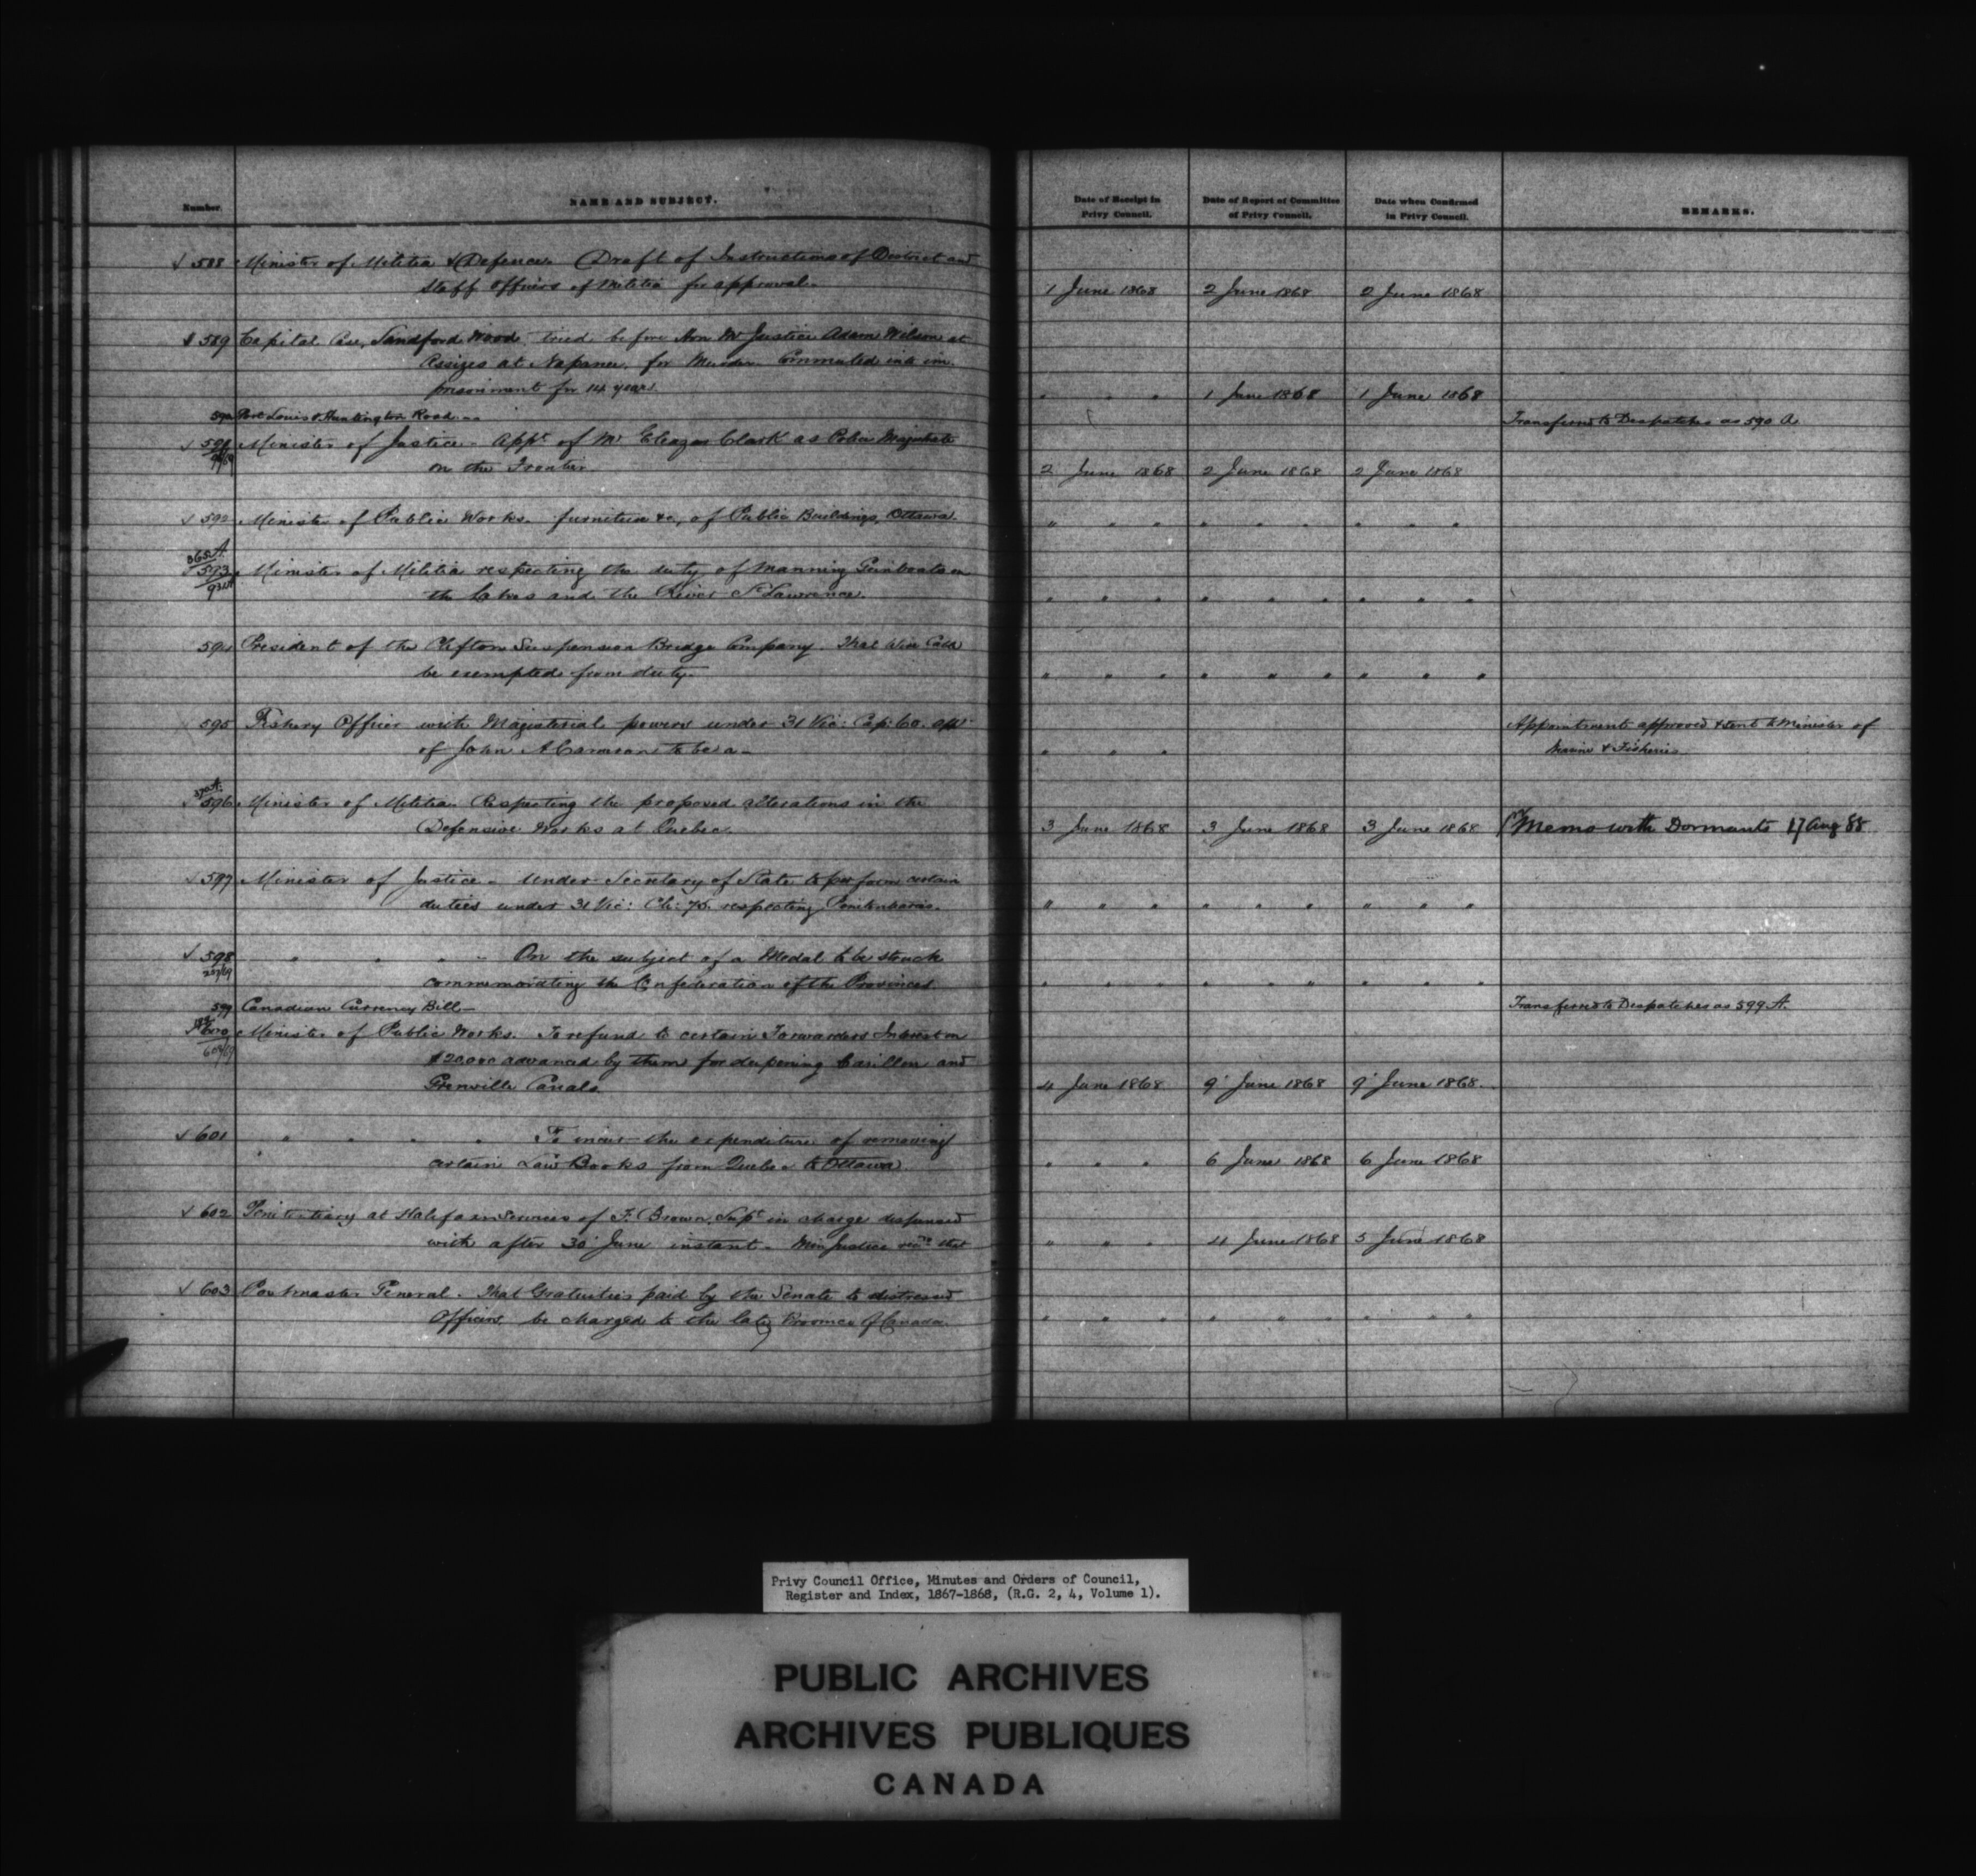 Number. NAME AND SUBJECT. Date of Receipt in Privy Council. Date of Report of Committee of Privy Council. Date when Confirmed in Privy Council. REMARKS.
√ 588 Minister of Militia & Defence. Draft of Instructions of District and
Staff Officers of Militia for approval. 1 June 1868 2 June 1868 2 June 1868
589 Capital Case, Sandford Wood tried before Hon Mr Justice Adam Wilson at
Assizes at Napanee, for Murder. Commuted into im-
prisonment for 14 years. " " " 1 June 1868 1 June 1868
590 Port Louis & Huntington Road — Transferred to Despatches as 590 A
√ 591 Minister of Justice — Appt of Mr Eleazar Clark as Police Magistrate
on the Frontier. 2 June 1868 2 June 1868 2 June 1868
√ 592 Minister of Public Works. furniture &c, of Public Buildings, Ottawa. " " " " " " " " "
593 Minister of Militia respecting the duty of Manning Gunboats on
the Lakes and the River St Lawrence. " " " " " " " " "
594 President of the Clifton Suspension Bridge Company. That Wire
be exempted from duty. " " " " " " " " "
595 Fishery Officer with Magisterial powers under 31 Vic: Cap: 60. Appt Appointment approved & sent to Minister of
of John A Cameron to be a — " " " Marine & Fisheries
√ 596 Minister of Militia. Respecting the proposed alterations in the
Defensive Works at Quebec. 3 June 1868 3 June 1868 3 June 1868 Memo with Dormants 17 Aug 88
√ 597 Minister of Justice — Under-Secretary of State to perform certain
duties under 31 Vic: Ch: 75. respecting Penitentiaries. " " " " " " " " "
√ 598 " " " " On the subject of a Medal to be struck
commemorating the Confederation of the Provinces. " " " " " " " " "
599 Canadian Currency Bill — Transferred to Despatches as 599 A.
600 Minister of Public Works. To refund to certain Forwarders Interest on
$20,000 advanced by them for deepening Carillon and
Grenville Canals. 4 June 1868 9 June 1868 9 June 1868.
√ 601 " " " " To incur the expenditure of removing
certain Law Books from Quebec to Ottawa. " " " 6 June 1868 6 June 1868
√ 602 Penitentiary at Halifax services of F. Brown, Supt in charge dispensed
with after 30 June instant — Min Justice that " " " 4 June 1868 5 June 1868
√ 603 Postmaster General. That Gratuities paid by the Senate to distressed
Officers, be charged to the late Province of Canada. " " " " " " " " "
Privy Council Office, Minutes and Orders of Council,
Register and Index, 1867-1868, (R.G. 2, 4, Volume 1).
PUBLIC ARCHIVES
ARCHIVES PUBLIQUES
CANADA